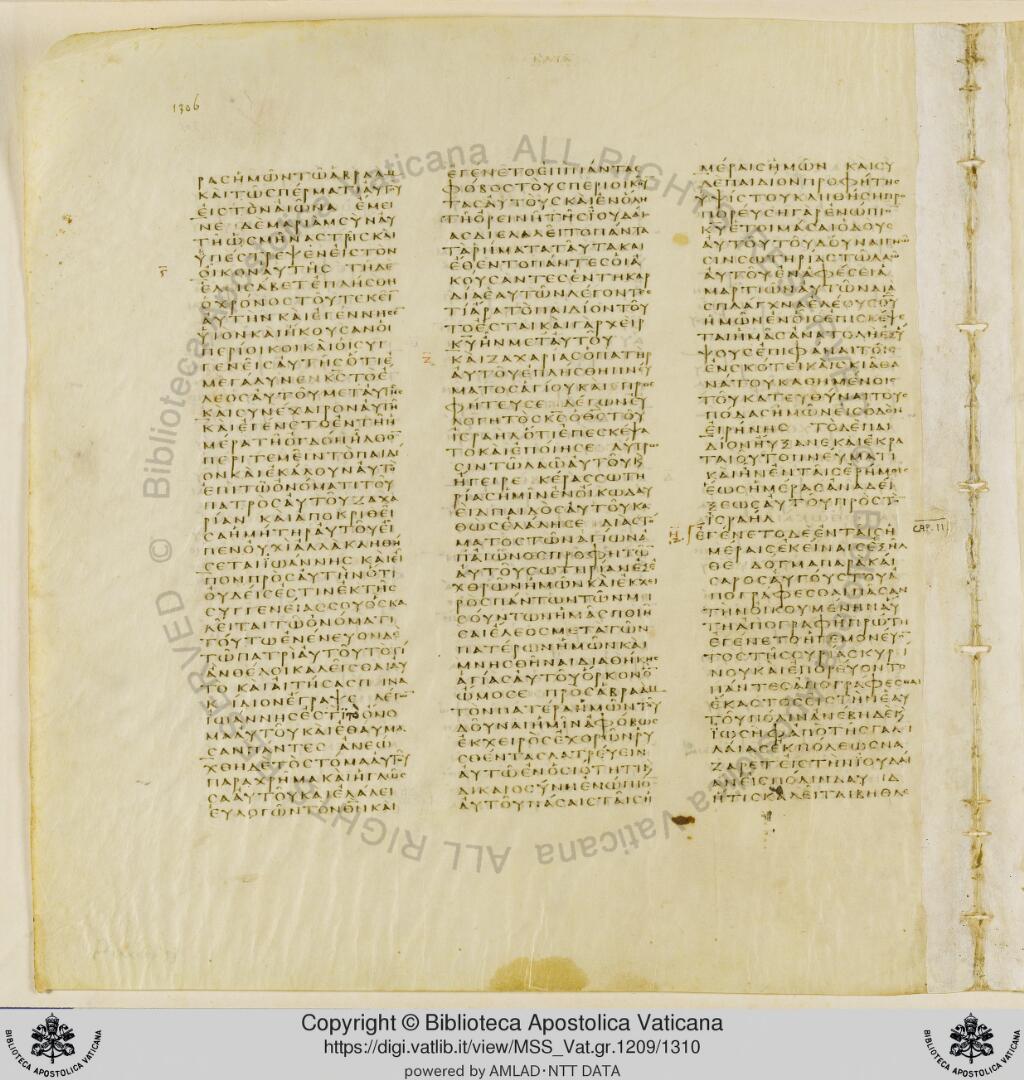 1306
ΚΑΤΑ
ΡΑΣΗΜΩΝΤΩΑΒΡΑΑΜ
ΚΑΙΤΩΣΠΕΡΜΑΤΙΑΥΤΟΥ
ΕΙΣΤΟΝΑΙΩΝΑ ΕΜΕΙ
ΝΕ ΔΕΜΑΡΙΑΜΣΥΝΑΥ
ΤΗΩΣΜΗΝΑΣΤΡΕΙΣΚΑΙ
ΥΠΕΣΤΡΕΨΕΝΕΙΣΤΟΝ
ΟΙΚΟΝΑΥΤΗΣ ΤΗΔΕ
ΕΛΕΙΣΑΒΕΤΕΠΛΗΣΘΗ
ΟΧΡΟΝΟΣΤΟΥΤΕΚΕΙ
ΑΥΤΗΝΚΑΙΕΓΕΝΝΗΣΕ
ΥΙΟΝΚΑΙΗΚΟΥΣΑΝΟΙ
ΠΕΡΙΟΙΚΟΙΚΑΙΟΙΣΥΓ
ΓΕΝΕΙΣΑΥΤΗΣΟΤΙΕ
ΜΕΓΑΛΥΝΕΝΚΣΤΟΕ
ΛΕΟΣΑΥΤΟΥΜΕΤΑΥΤΗΣ
ΚΑΙΣΥΝΕΧΑΙΡΟΝΑΥΤΗ
ΚΑΙΕΓΕΝΕΤΟΕΝΤΗΗ
ΜΕΡΑΤΗΟΓΔΟΗΗΛΘΟΝ
ΠΕΡΙΤΕΜΕΙΝΤΟΠΑΙΔΙ
ΟΝΚΑΙΕΚΑΛΟΥΝΑΥΤΟ
ΕΠΙΤΩΟΝΟΜΑΤΙΤΟΥ
ΠΑΤΡΟΣΑΥΤΟΥΖΑΧΑ
ΡΙΑΝ ΚΑΙΑΠΟΚΡΙΘΕΙ
ΣΑΗΜΗΤΗΡΑΥΤΟΥΕΙ
ΠΕΝΟΥΧΙΑΛΛΑΚΛΗΘΗ
ΣΕΤΑΙΙΩΑΝΝΗΣ ΚΑΙΕΙ
ΠΟΝΠΡΟΣΑΥΤΗΝΟΤΙ
ΟΥΔΕΙΣΕΣΤΙΝΕΚΤΗΣ
ΣΥΓΓΕΝΕΙΑΣΣΟΥΟΣΚΑ
ΛΕΙΤΑΙΤΩΟΝΟΜΑΤΙ
ΤΟΥΤΩΕΝΕΝΕΥΟΝΔΕ
ΤΩΠΑΤΡΙΑΥΤΟΥΤΟΤΙ
ΑΝΘΕΛΟΙΚΑΛΕΙΣΘΑΙΑΥ
ΤΟ ΚΑΙΑΙΤΗΣΑΣΠΙΝΑ
ΚΙΔΙΟΝΕΓΡΑΨΕ ΛΕΓΩΝ
ΙΩΑΝΝΗΣΕΣΤΙΤΟΟΝΟ
ΜΑΑΥΤΟΥΚΑΙΕΘΑΥΜΑ
ΣΑΝΠΑΝΤΕΣ ΑΝΕΩ
ΧΘΗΔΕΤΟΣΤΟΜΑΑΥΤΟΥ
ΠΑΡΑΧΡΗΜΑΚΑΙΗΓΛΩΣ
ΣΑΑΥΤΟΥΚΑΙΕΛΑΛΕΙ
ΕΥΛΟΓΩΝΤΟΝΘΝΚΑΙ
ΕΓΕΝΕΤΟΕΠΙΠΑΝΤΑΣ
ΦΟΒΟΣΤΟΥΣΠΕΡΙΟΙΚΟΥ
ΤΑΣΑΥΤΟΥΣΚΑΙΕΝΟΛΗ
ΤΗΟΡΕΙΝΗΤΗΣΙΟΥΔΑΙ
ΑΣΔΙΕΛΑΛΕΙΤΟΠΑΝΤΑ
ΤΑΡΗΜΑΤΑΤΑΥΤΑΚΑΙ
ΕΘΕΝΤΟΠΑΝΤΕΣΟΙΑ
ΚΟΥΣΑΝΤΕΣΕΝΤΗΚΑΡ
ΔΙΑΕΑΥΤΩΝΛΕΓΟΝΤΕΣ
ΤΙΑΡΑΤΟΠΑΙΔΙΟΝΤΟΥ
ΤΟΕΣΤΑΙΚΑΙΓΑΡΧΕΙΡ
ΚΥΗΝΜΕΤΑΥΤΟΥ
Ζ ΚΑΙΖΑΧΑΡΙΑΣΟΠΑΤΗΡ
ΑΥΤΟΥΕΠΛΗΣΘΗΠΝΕΥ
ΜΑΤΟΣΑΓΙΟΥΚΑΙΕΠΡΟ
ΦΗΤΕΥΣΕ ΛΕΓΩΝΕΥ
ΛΟΓΗΤΟΣΚΣΟΘΣΤΟΥ
ΙΣΡΑΗΛΟΤΙΕΠΕΣΚΕΨΑ
ΤΟΚΑΙΕΠΟΙΗΣΕ ΛΥΤΡΩ
ΣΙΝΤΩΛΑΩΑΥΤΟΥΚΑΙ
ΗΓΕΙΡΕ ΚΕΡΑΣΣΩΤΗ
ΡΙΑΣΗΜΙΝΕΝΟΙΚΩΔΑΥ
ΕΙΔΠΑΙΔΟΣΑΥΤΟΥΚΑ
ΘΩΣΕΛΑΛΗΣΕ ΔΙΑΣΤΟ
ΜΑΤΟΣΤΩΝΑΓΙΩΝΑ
ΠΑΙΩΝΟΣΠΡΟΦΗΤΩΝ
ΑΥΤΟΥΣΩΤΗΡΙΑΝΕΞΕ
ΧΘΡΩΝΗΜΩΝΚΑΙΕΚΧΕΙ
ΡΟΣΠΑΝΤΩΝΤΩΝΜΙ
ΣΟΥΝΤΩΝΗΜΑΣΠΟΙΗ
ΣΑΙΕΛΕΟΣΜΕΤΑΤΩΝ
ΠΑΤΕΡΩΝΗΜΩΝΚΑΙ
ΜΝΗΣΘΗΝΑΙΔΙΑΘΗΚΗΣ
ΑΓΙΑΣΑΥΤΟΥΟΡΚΟΝΟΝ
ΩΜΟΣΕ ΠΡΟΣΑΒΡΑΑΜ
ΤΟΝΠΑΤΕΡΑΗΜΩΝΤΟΥ
ΔΟΥΝΑΙΗΜΙΝΑΦΟΒΩΣ
ΕΚΧΕΙΡΟΣΕΧΘΡΩΝΡΥ
ΣΘΕΝΤΑΣΛΑΤΡΕΥΕΙΝ
ΑΥΤΩΕΝΟΣΙΟΤΗΤΙΚΑΙ
ΔΙΚΑΙΟΣΥΝΗΕΝΩΠΙΟΝ
ΑΥΤΟΥΠΑΣΑΙΣΤΑΙΣΗ
ΜΕΡΑΙΣΗΜΩΝ ΚΑΙΣΥ
ΔΕΠΑΙΔΙΟΝΠΡΟΦΗΤΗΣ
ΥΨΙΣΤΟΥΚΛΗΘΗΣΗΠΡΟ
ΠΟΡΕΥΣΗΓΑΡΕΝΩΠΙΟΝ
ΚΥΕΤΟΙΜΑΣΑΙΟΔΟΥΣ
ΑΥΤΟΥΤΟΥΔΟΥΝΑΙΓΝΩ
ΣΙΝΣΩΤΗΡΙΑΣΤΩΛΑΩ
ΑΥΤΟΥΕΝΑΦΕΣΕΙΑ
ΜΑΡΤΙΩΝΑΥΤΩΝΔΙΑ
ΣΠΛΑΓΧΝΑΕΛΕΟΥΣΘΥ
ΗΜΩΝΕΝΟΙΣΕΠΙΣΚΕΨΕ
ΤΑΙΗΜΑΣΑΝΑΤΟΛΗΕΞΥ
ΨΟΥΣΕΠΙΦΑΝΑΙΤΟΙΣ
ΕΝΣΚΟΤΕΙΚΑΙΣΚΙΑΘΑ
ΝΑΤΟΥΚΑΘΗΜΕΝΟΙΣ
ΤΟΥΚΑΤΕΥΘΥΝΑΙΤΟΥΣ
ΠΟΔΑΣΗΜΩΝΕΙΣΟΔΟΝ
ΕΙΡΗΝΗΣ ΤΟΔΕΠΑΙ
ΔΙΟΝΗΥΞΑΝΕΚΑΙΕΚΡΑ
ΤΑΙΟΥΤΟΠΝΕΥΜΑΤΙ
ΚΑΙΗΝΕΝΤΑΙΣΕΡΗΜΟΙΣ
ΕΩΣΗΜΕΡΑΣΑΝΑΔΕΙ
ΞΕΩΣΑΥΤΟΥΠΡΟΣΤΟΝ
ΙΣΡΑΗΛ
Η ΕΓΕΝΕΤΟΔΕΕΝΤΑΙΣΗ CAP. II
ΜΕΡΑΙΣΕΚΕΙΝΑΙΣΕΞΗΛ
ΘΕ ΔΟΓΜΑΠΑΡΑΚΑΙ
ΣΑΡΟΣΑΥΓΟΥΣΤΟΥΑ
ΠΟΓΡΑΦΕΣΘΑΙΠΑΣΑΝ
ΤΗΝΟΙΚΟΥΜΕΝΗΝΑΥ
ΤΗΑΠΟΓΡΑΦΗΠΡΩΤΗ
ΕΓΕΝΕΤΟΗΓΕΜΟΝΕΥΟΝ
ΤΟΣΤΗΣΣΥΡΙΑΣΚΥΡΙ
ΝΟΥΚΑΙΕΠΟΡΕΥΟΝΤΟ
ΠΑΝΤΕΣΑΠΟΓΡΑΦΕΣΘΑΙ
ΕΚΑΣΤΟΣΕΙΣΤΗΝΕΑΥ
ΤΟΥΠΟΛΙΝΑΝΕΒΗΔΕΚΑΙ
ΙΩΣΗΦΑΠΟΤΗΣΓΑΛΙ
ΛΑΙΑΣΕΚΠΟΛΕΩΣΝΑ
ΖΑΡΕΤΕΙΣΤΗΝΙΟΥΔΑΙ
ΑΝΕΙΣΠΟΛΙΝΔΑΥΕΙΔ
ΗΤΙΣΚΑΛΕΙΤΑΙΒΗΘΛΕ
© Biblioteca Apostolica Vaticana ALL RIGHTS RESERVED
Copyright © Biblioteca Apostolica Vaticana
https://digi.vatlib.it/view/MSS_Vat.gr.1209/1310
powered by AMLAD·NTT DATA
BIBLIOTECA APOSTOLICA VATICANA
BIBLIOTECA APOSTOLICA VATICANA